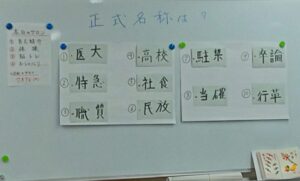 正式名称は?
本日のサロン
① 医大
② 特急
③ 職質
④ 高校
⑤ 社食
⑥ 民放
⑦ 駐禁
⑧ 当確
⑨ 卒論
⑩ 行革